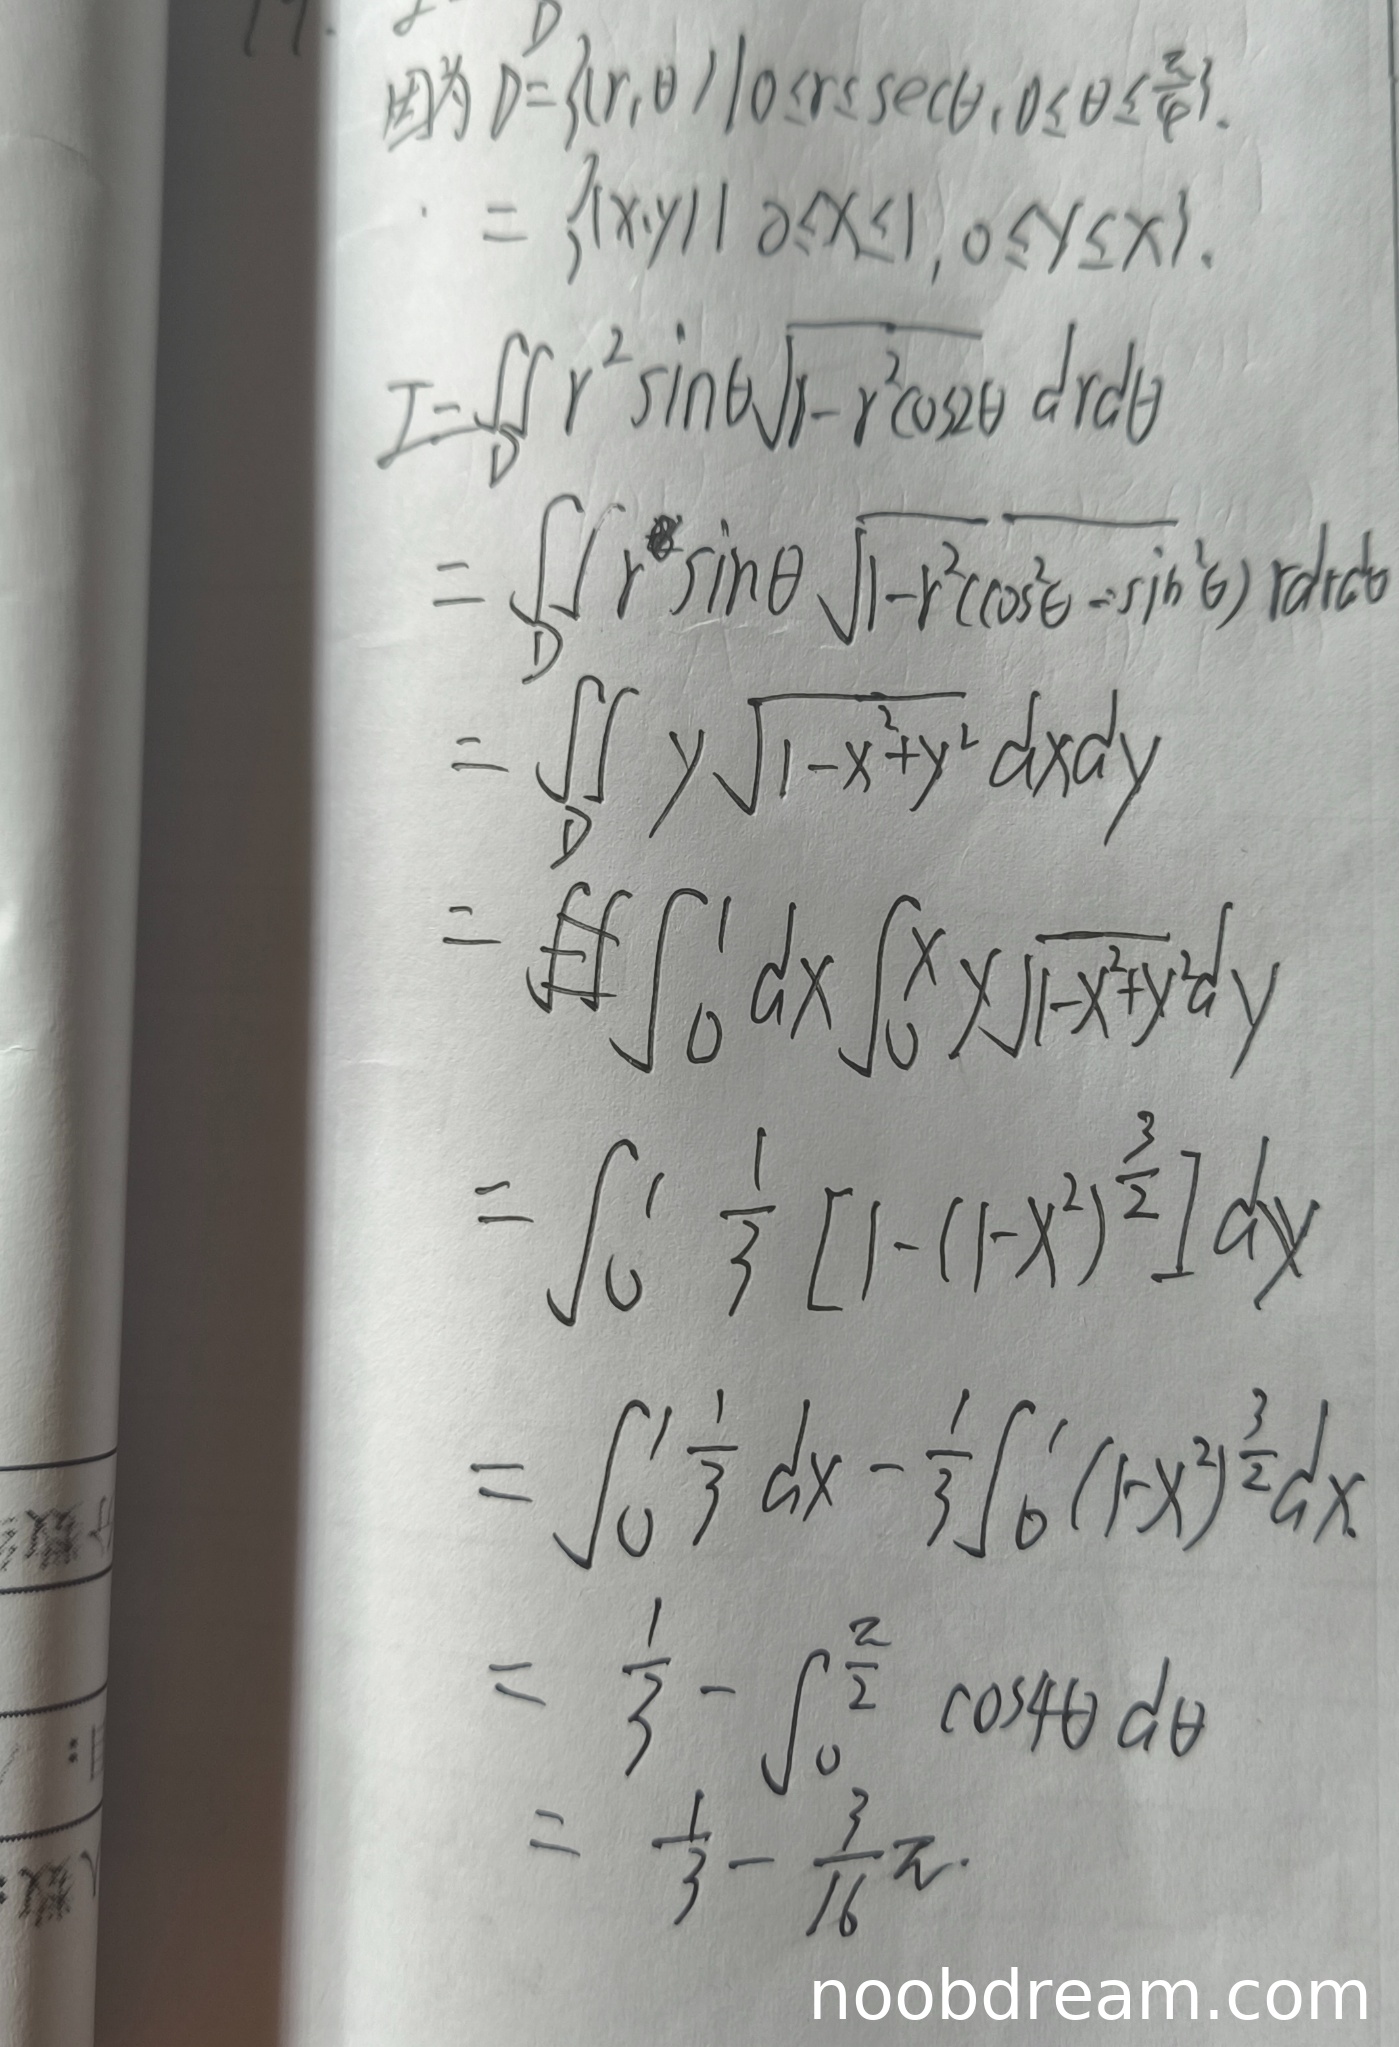 因为 D={(r,θ)|0≤r≤secθ,0≤θ≤π/4}.
= {(x,y)|0≤x≤1,0≤y≤x}.
I=∬_D r²sinθ√(1-r²cos2θ) drdθ
= ∬_D r sinθ √(1-r²(cos²θ-sin²θ)) rdrdθ
= ∬_D y√(1-x²+y²) dxdy
= ∫₀¹ dx ∫₀ˣ y√(1-x²+y²) dy
= ∫₀¹ 1/3 [1-(1-x²)^(3/2)] dy
= ∫₀¹ 1/3 dx - 1/3 ∫₀¹ (1-x²)^(3/2) dx.
= 1/3 - ∫₀^(π/2) cos4θ dθ
= 1/3 - 3/16 π.
noobdream.com